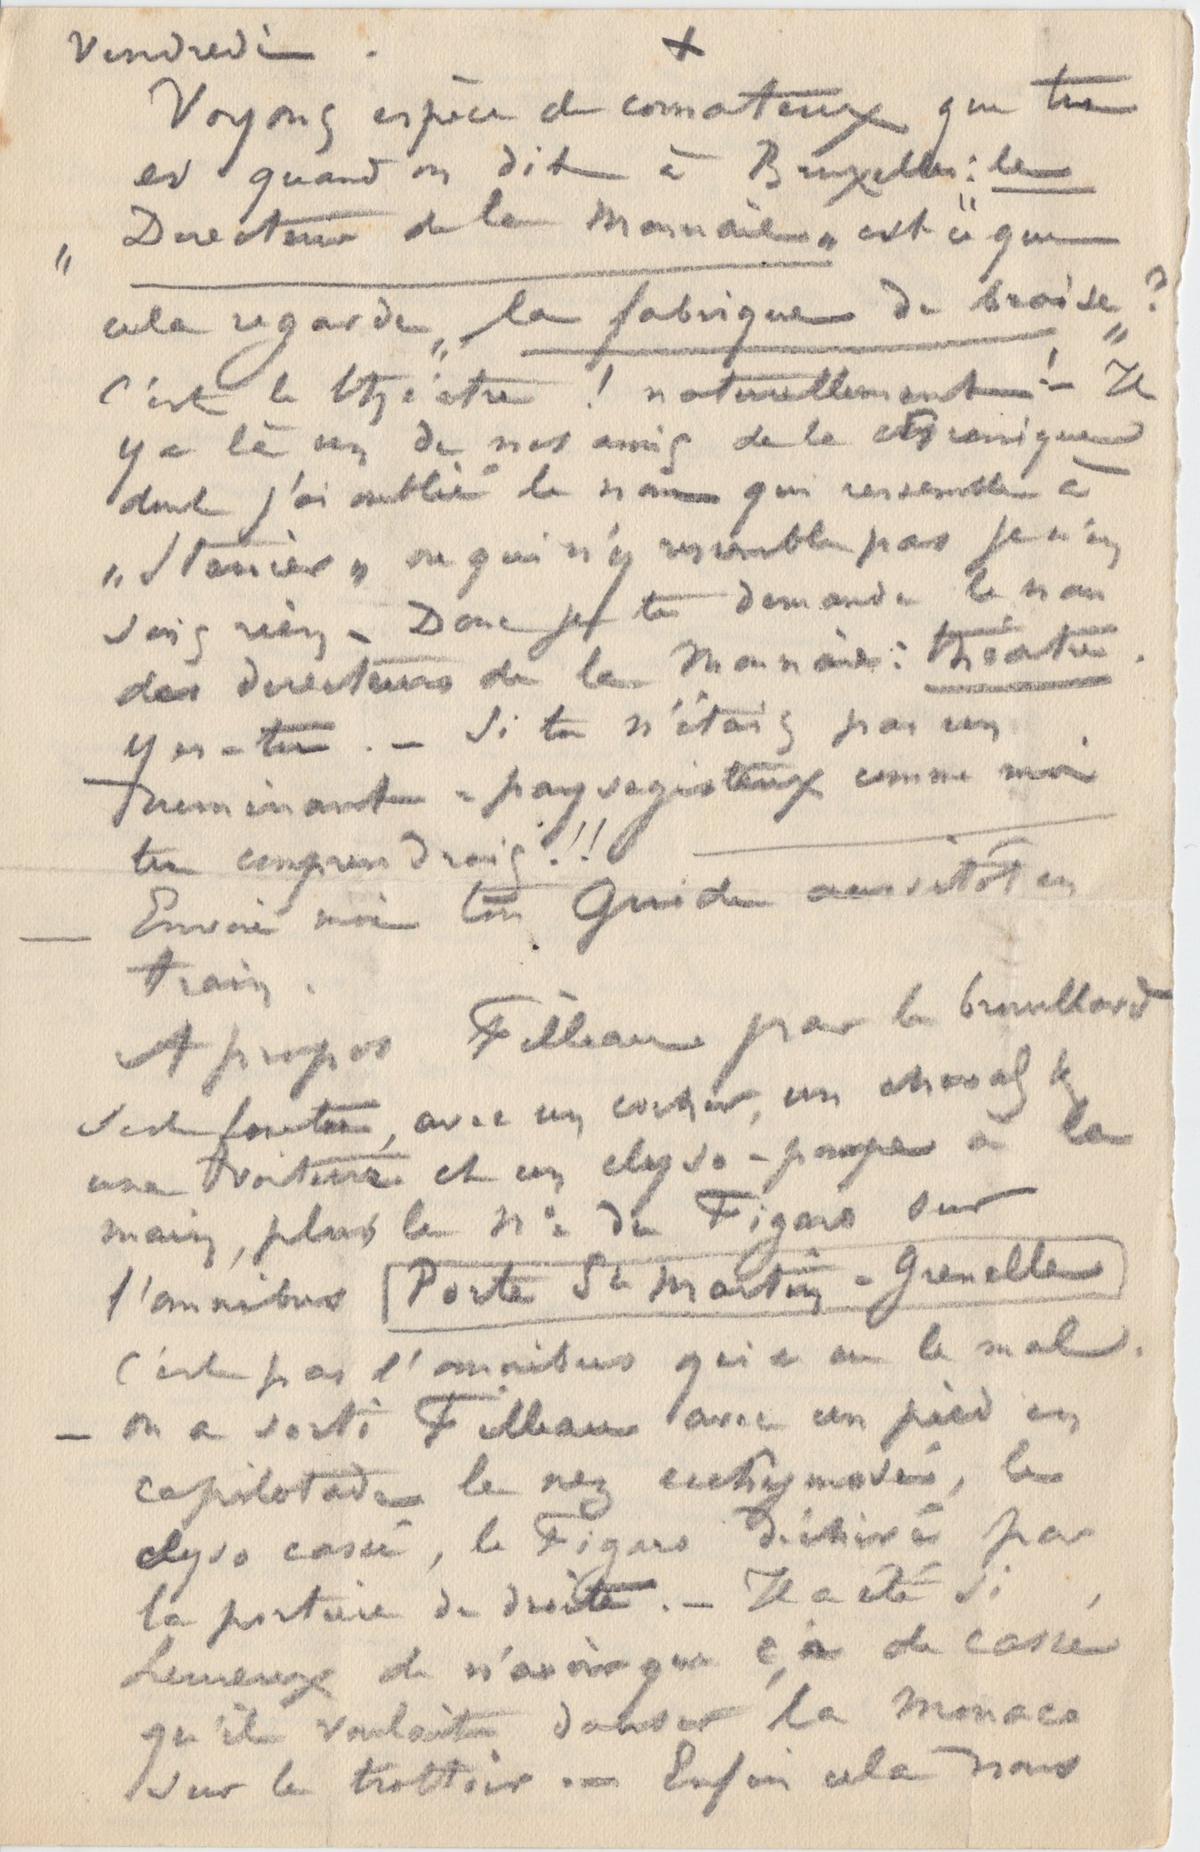 Vendredi . +
Voyons espèce de comateux que tu
es quand on dit à Bruxelles : le
Directeur de la Monnaie " est ce que
" cela regarde " la fabrique de braise " ?
C'est le théâtre ! naturellement ! – Il
y a là un de nos amis de la chronique
dont j'ai oublié le nom qui ressemble à
" Stenier " ou qui n'y ressemble pas je n'en
sais rien – Donc je te demande le nom
des directeurs de la Monnaie : théâtre .
y es-tu . – Si tu n'étais pas un
ruminant - paysagisteux comme moi
tu comprendrais !!!
– Envoie moi ton Guide aussitôt en
train .
A propos Filleau par le brouillard
s'est foutu, avec un cocher, un cheval &
une voiture et un clyso-pompe à la
main, plus le n° du Figaro sur
l'omnibus Porte St Martin - Grenelle
C'est pas l'omnibus qui a eu le mal .
– On a sorti Filleau avec un pied en
capilotade le nez ecchymosé, le
clyso cassé, le Figaro déchiré par
la portière de droite . – Il a été si
heureux de n'avoir que ça de cassé
qu'il voulait danser la Monaco
sur le trottoir . – Enfin cela nous